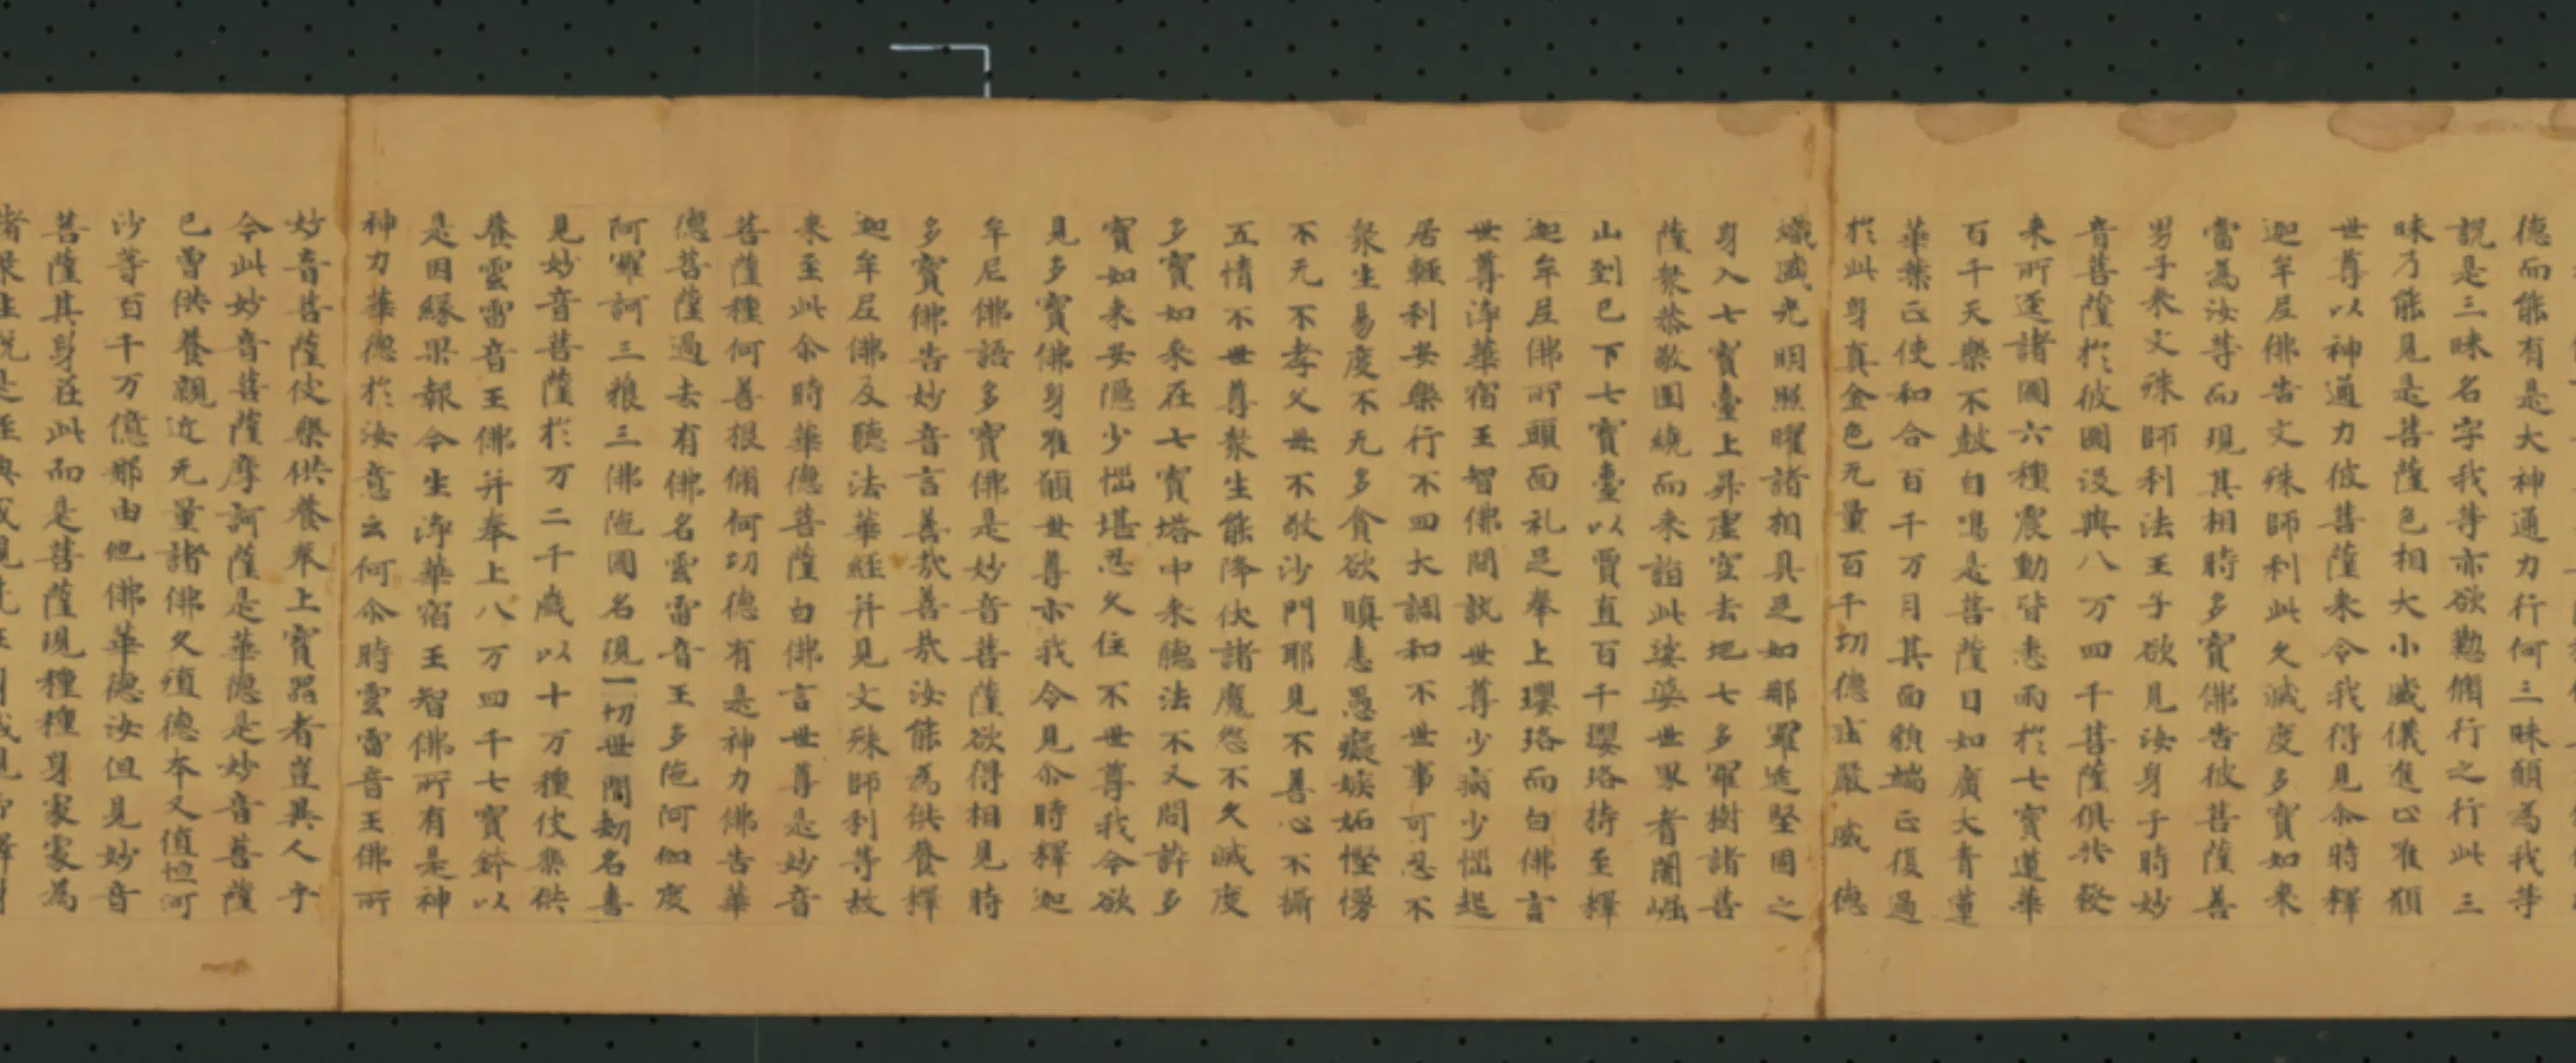 德而能有是大神通力行何三昧願為我等
說是三昧名字我等亦欲懃脩行之行此三
昧乃能見是菩薩色相大小威儀進心唯願
世尊以神通力彼菩薩来令我得見尒時釋
迦牟尼佛告文殊師利此久滅度多寶如来
當為汝等而現其相時多寶佛告彼菩薩善
男子来文殊師利法王子欲見汝身于時妙
音菩薩於彼國没與八万四千菩薩俱共發
来所逕諸國六種震動皆悉雨於七寶蓮華
百千天樂不鼓自鳴是菩薩目如廣大青蓮
華葉正使和合百千万月其面䫉端正復過
於此身真金色无量百千功德莊嚴威德
熾盛光明照曜諸相具足如那羅延堅固之
身入七寶臺上昇虛空去地七多羅樹諸菩
薩衆恭敬圍繞而来詣此娑婆世界耆闍崛
山到已下七寶臺以賈直百千瓔珞持至釋
迦牟尼佛所頭面礼足奉上瓔珞而白佛言
世尊淨華宿王智佛問訊世尊少病少惱起
居輕利安樂行不四大調和不世事可忍不
衆生易度不无多貪欲瞋恚愚癡嫉妬慳慢
不无不孝父母不敬沙門耶見不善心不攝
五情不世尊衆生能降伏諸魔怨不久滅度
多寶如来在七寶塔中来聽法不又問訊多
寶如来安隱少惱堪忍久住不世尊我今欲
見多寶佛身唯願世尊示我令見尒時釋迦
牟尼佛語多寶佛是妙音菩薩欲得相見時
多寶佛告妙音言善哉善哉汝能為供養釋
迦牟尼佛及聽法華經并見文殊師利等故
来至此尒時華德菩薩白佛言世尊是妙音
菩薩種何善根脩何功德有是神力佛告華
德菩薩過去有佛名雲雷音王多陁阿伽度
阿羅訶三藐三佛陁國名現一切世間劫名憙
見妙音菩薩於万二千歲以十万種伎樂供
養雲雷音王佛并奉上八万四千七寶鉢以
是因緣果報今生淨華宿王智佛所有是神
神力華德於汝意云何尒時雲雷音王佛所
妙音菩薩伎樂供養奉上寶器者豈異人乎
今此妙音菩薩摩訶薩是華德是妙音菩薩
已曾供養親近无量諸佛久殖德本又值恒河
沙等百千万億那由他佛華德汝但見妙音
菩薩其身在此而是菩薩現種種身家家為